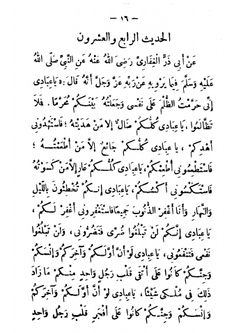 — ١٦ —
الحديث الرابع والعشرون
عَنْ أَبِي ذَرٍّ الْغِفَارِيِّ رَضِيَ اللهُ عَنْهُ عَنِ النَّبِيِّ صَلَّى اللهُ
عَلَيْهِ وَسَلَّمَ فِيمَا يَرْوِيهِ عَنْ رَبِّهِ عَزَّ وَجَلَّ أَنَّهُ قَالَ: «يَاعِبَادِي
إِنِّي حَرَّمْتُ الظُّلْمَ عَلَى نَفْسِي وَجَعَلْتُهُ بَيْنَكُمْ مُحَرَّمًا، فَلَا
تَظَالَمُوا، يَاعِبَادِي كُلُّكُمْ ضَالٌّ إِلَّا مَنْ هَدَيْتُهُ، فَاسْتَهْدُونِي
أَهْدِكُمْ، يَاعِبَادِي كُلُّكُمْ جَائِعٌ إِلَّا مَنْ أَطْعَمْتُهُ،
فَاسْتَطْعِمُونِي أُطْعِمْكُمْ، يَاعِبَادِي كُلُّكُمْ عَارٍ إِلَّا مَنْ كَسَوْتُهُ
فَاسْتَكْسُونِي أَكْسُكُمْ، يَاعِبَادِي إِنَّكُمْ تُخْطِئُونَ بِاللَّيْلِ
وَالنَّهَارِ وَأَنَا أَغْفِرُ الذُّنُوبَ جَمِيعًا فَاسْتَغْفِرُونِي أَغْفِرْ لَكُمْ،
يَاعِبَادِي إِنَّكُمْ لَنْ تَبْلُغُوا ضُرِّي فَتَضُرُّونِي، وَلَنْ تَبْلُغُوا
نَفْعِي فَتَنْفَعُونِي، يَاعِبَادِي لَوْ أَنَّ أَوَّلَكُمْ وَآخِرَكُمْ وَإِنْسَكُمْ
وَجِنَّكُمْ كَانُوا عَلَى أَتْقَى قَلْبِ رَجُلٍ وَاحِدٍ مِنْكُمْ مَا زَادَ
ذَلِكَ فِي مُلْكِي شَيْئًا، يَاعِبَادِي لَوْ أَنَّ أَوَّلَكُمْ وَآخِرَكُمْ
وَإِنْسَكُمْ وَجِنَّكُمْ كَانُوا عَلَى أَفْجَرِ قَلْبِ رَجُلٍ وَاحِدٍ